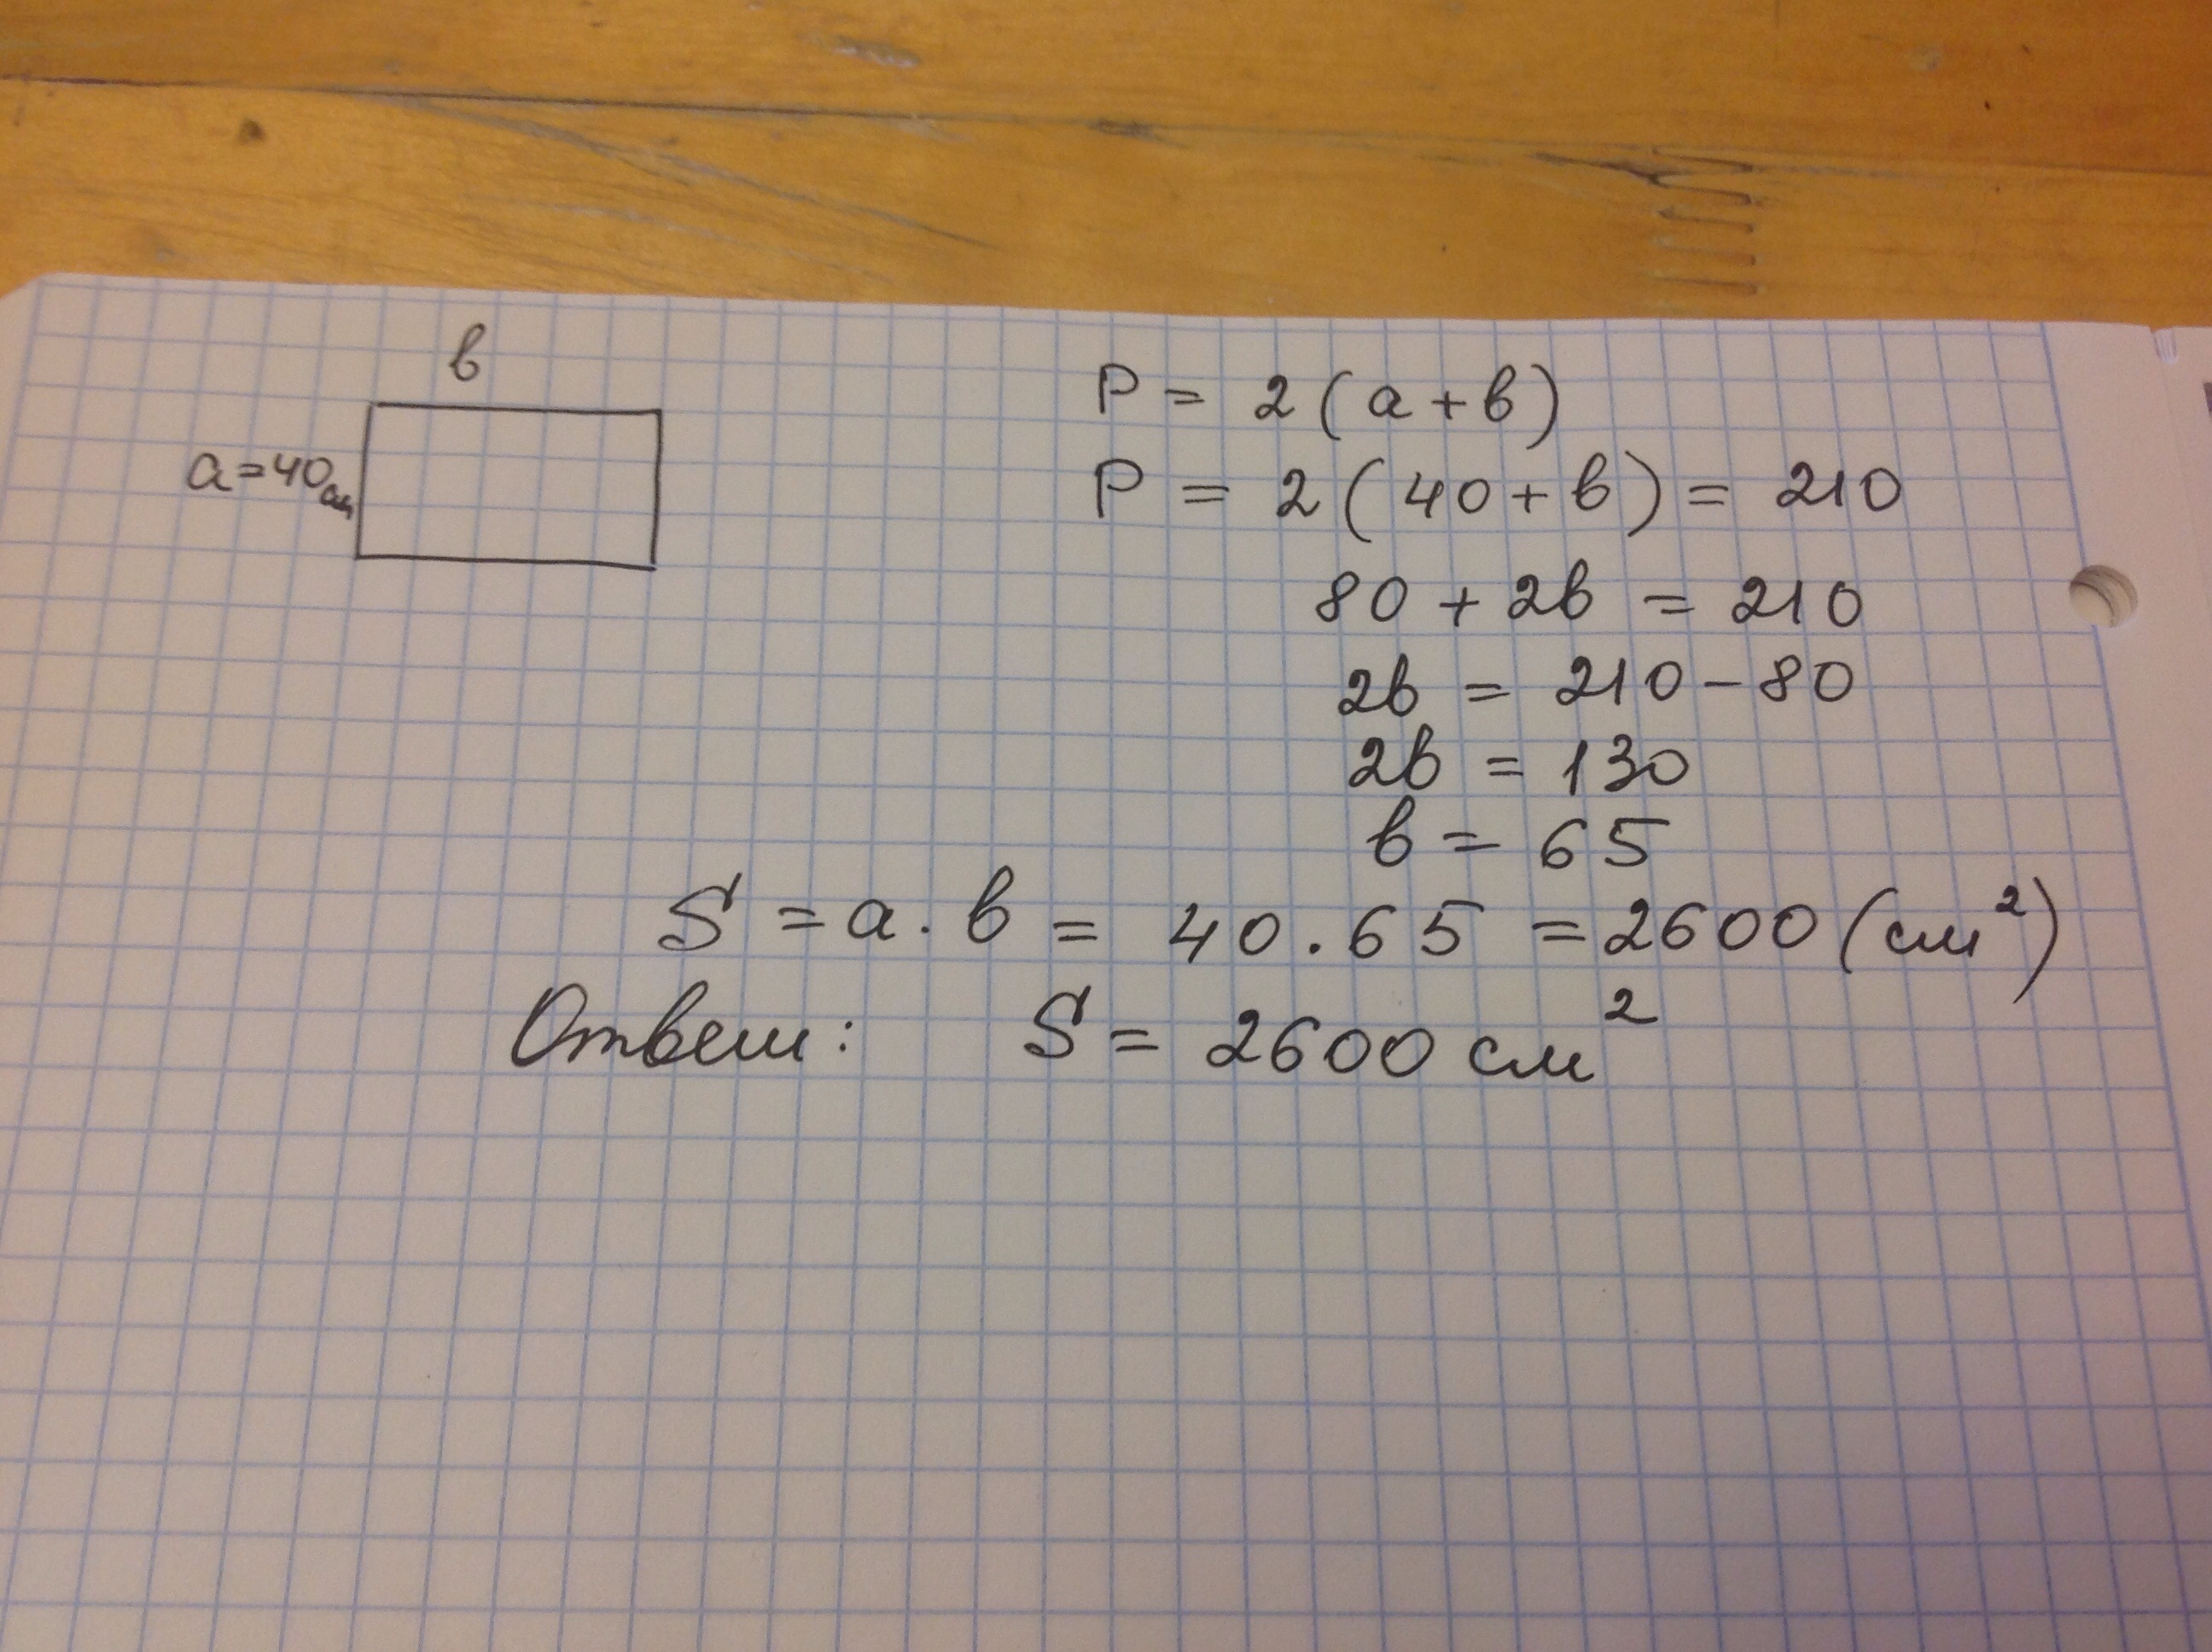 в
a = 40 см
P = 2(a + в)
P = 2(40 + в) = 210
80 + 2в = 210
2в = 210 - 80
2в = 130
в = 65
S = a · в = 40 · 65 = 2600 (см²)
Ответ: S = 2600 см²